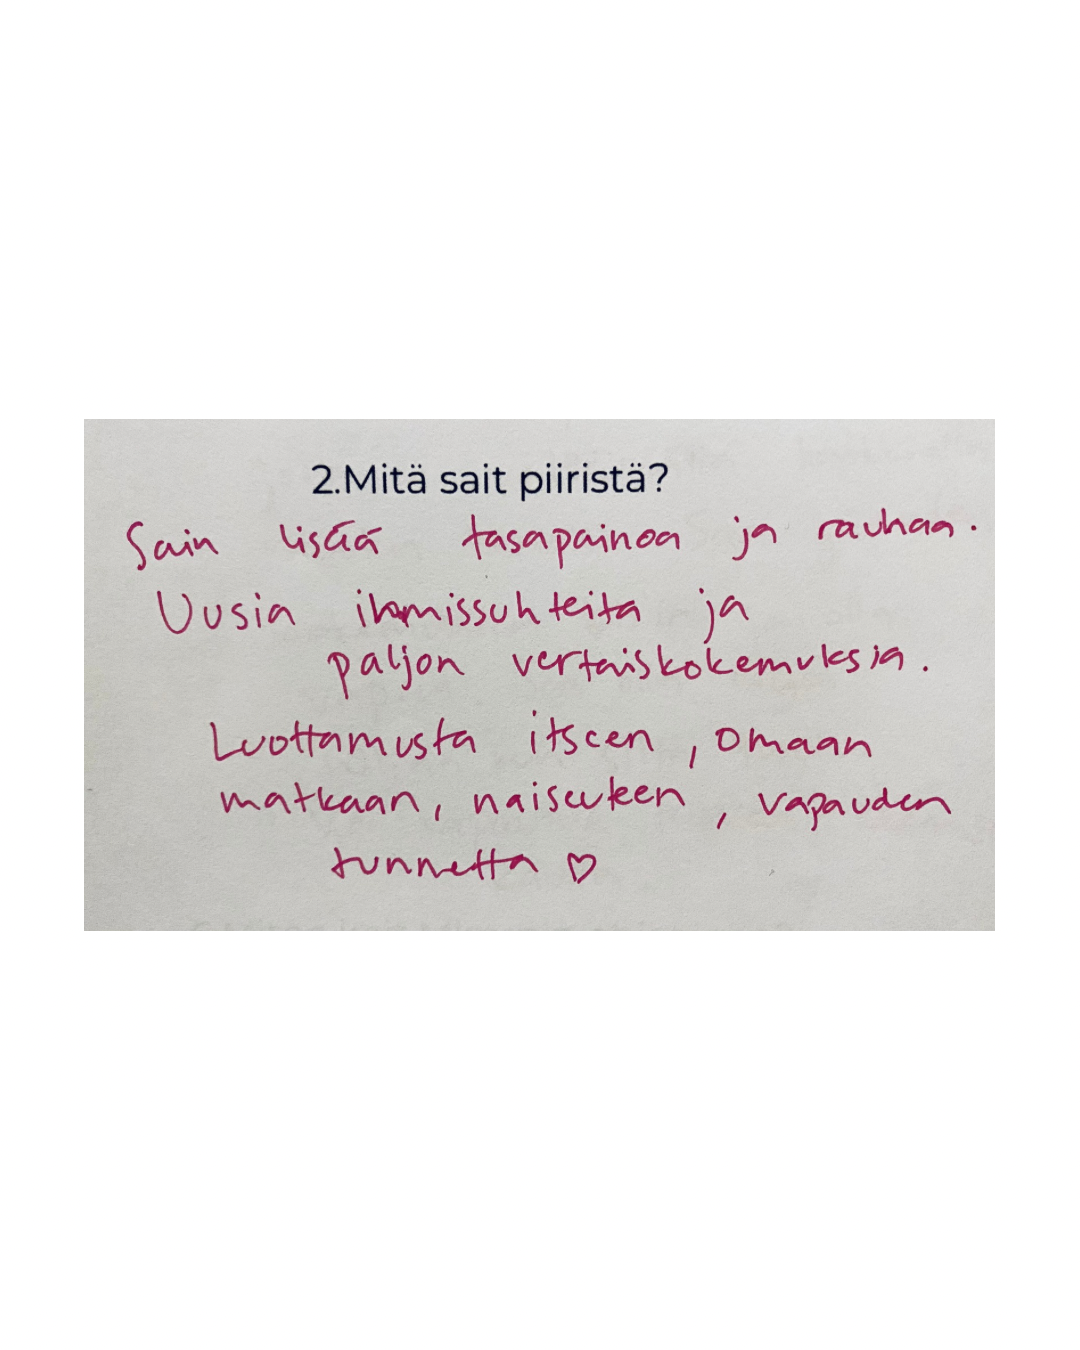 2.Mitä sait piiristä?
Sain lisää tasapainoa ja rauhaa.
Uusia ihmissuhteita ja
paljon vertaiskokemuksia.
Luottamusta itseen, omaan
matkaan, naiseuteen, vapauden
tunnetta ♡